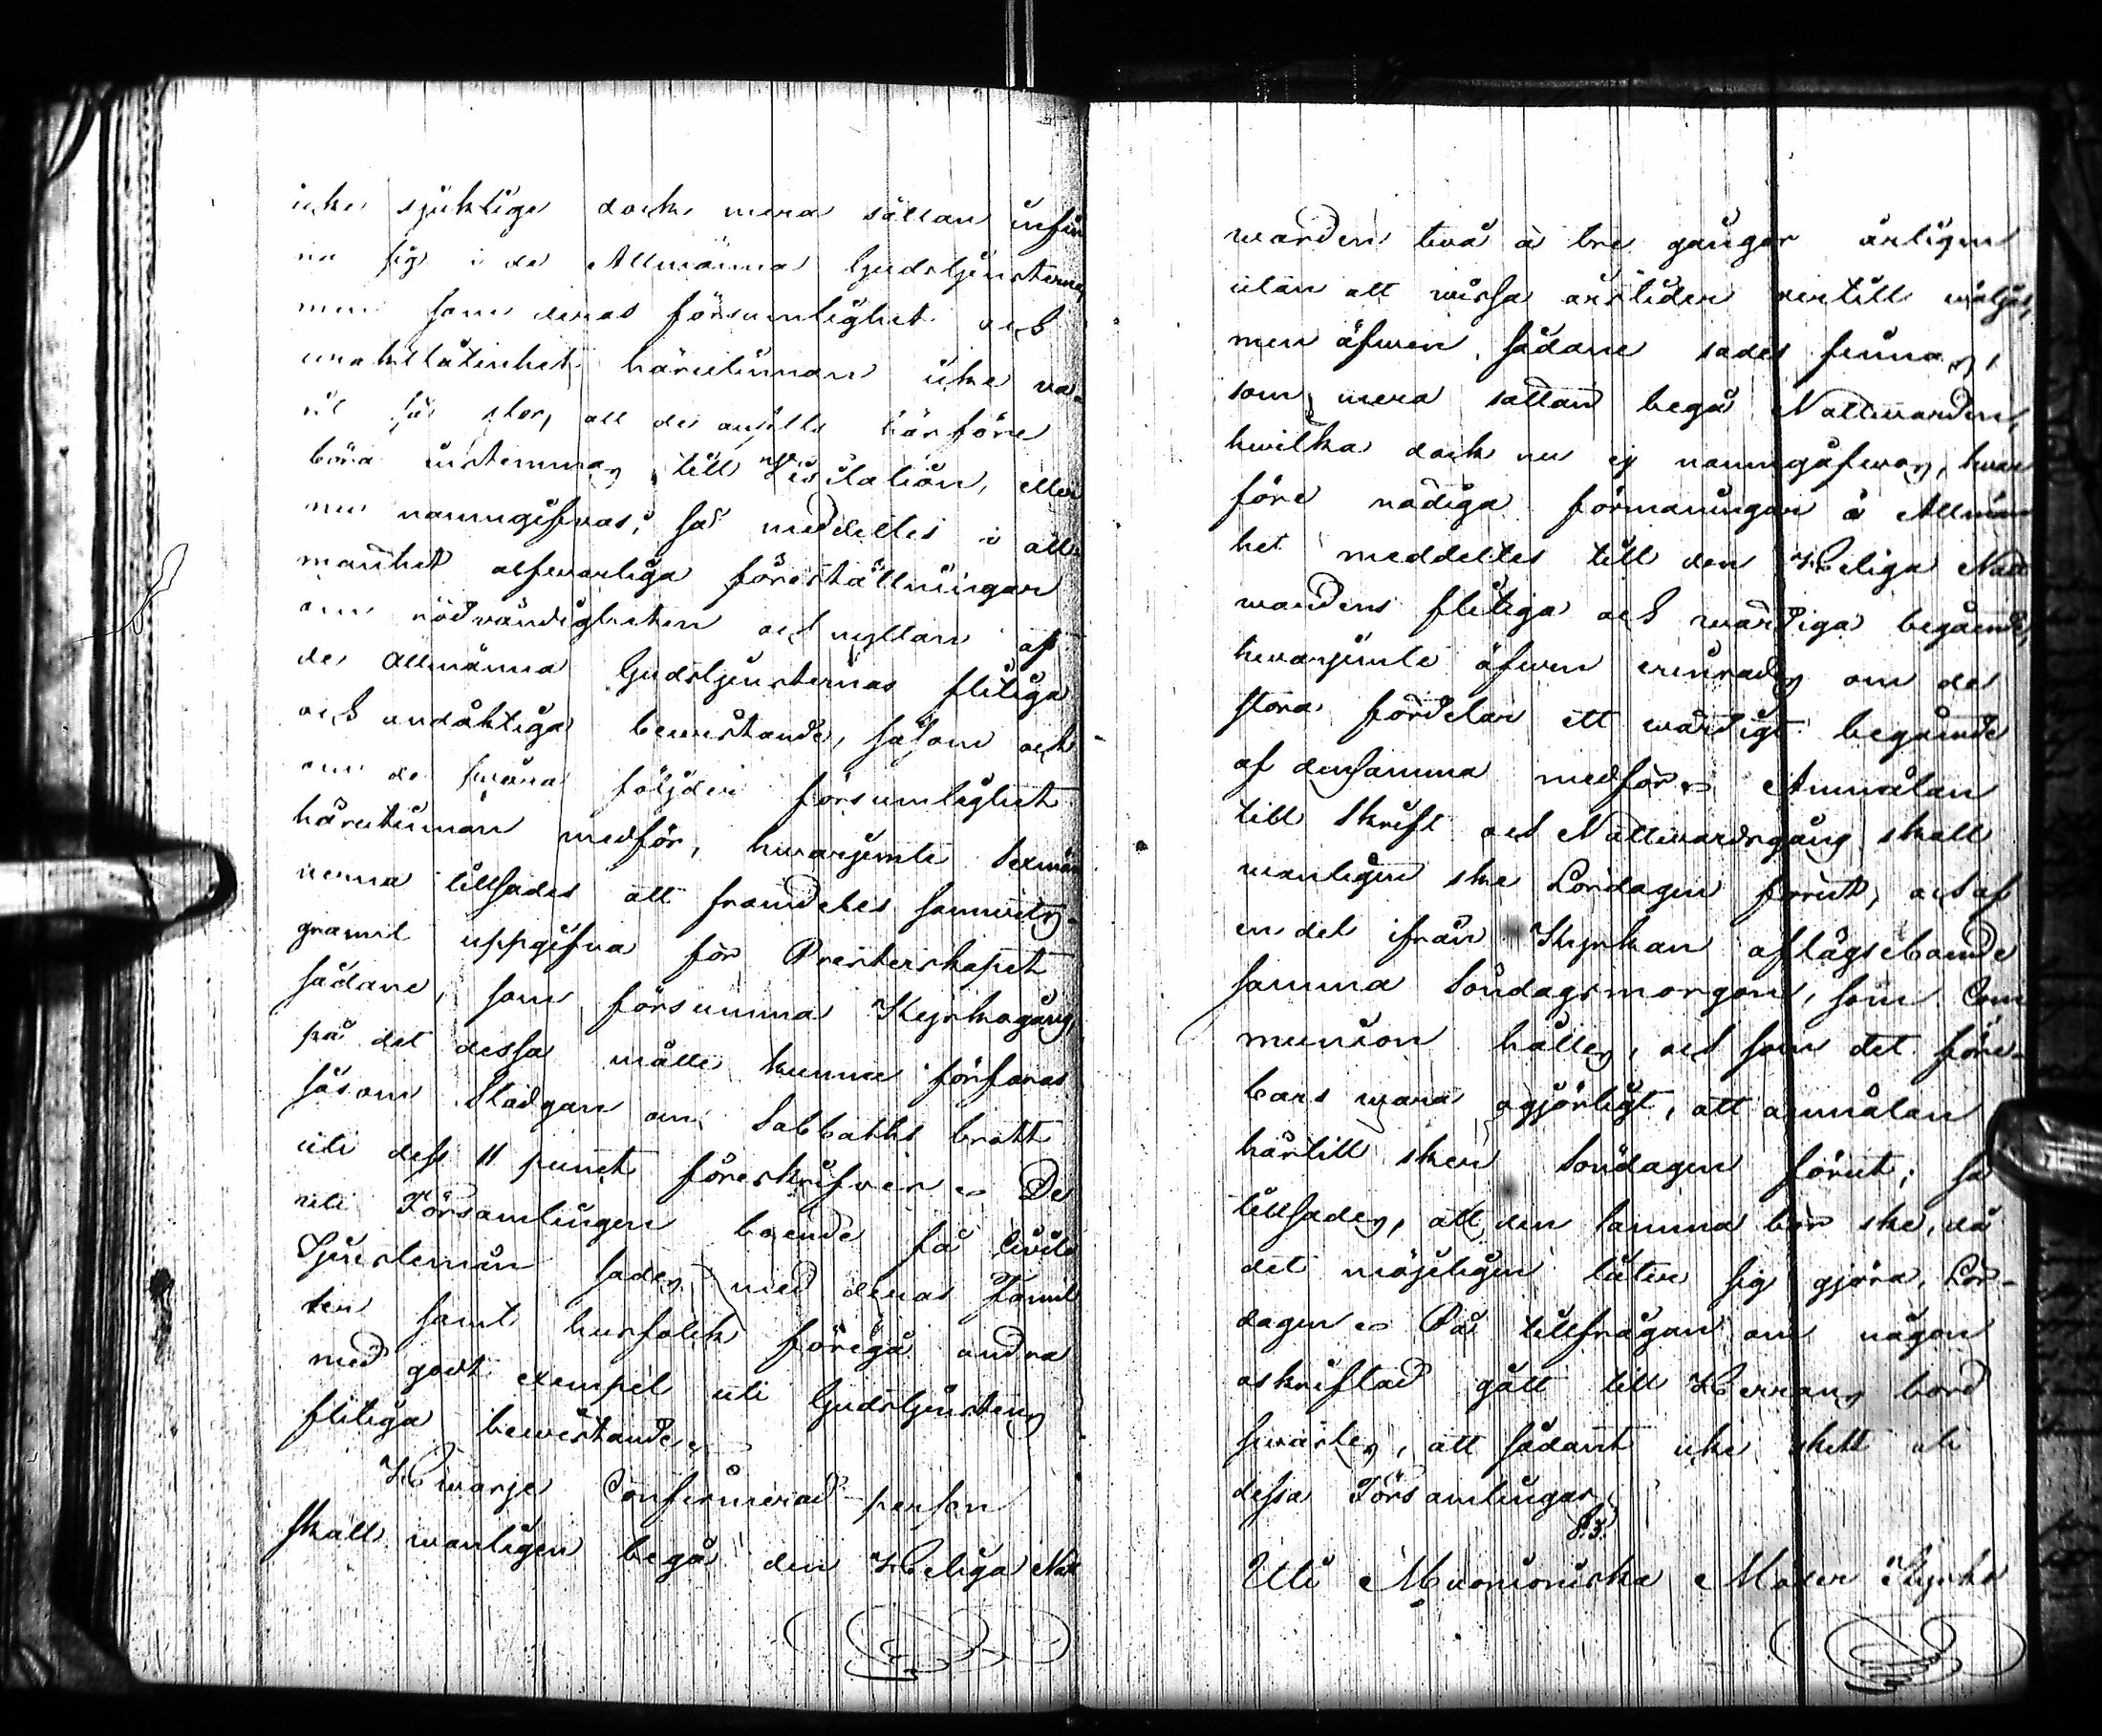 icke sjuklige dock mera sällan infin
na sig i de Allmänna Gudstjensterna
men som deras försumlighet och
uraktlåtenhet härutinnan icke va-
rit så stor, att de ansetts härföre
böra instemmas till Visitation, eller
nu namngifvas; så meddeltes i all-
mänhet alfwarliga föreställningar
om nödvändigheten och nyttan af
de Allmänna Gudstjensternas flitiga
och andäktiga bewistande, såsom ock
om de swåra följder försumlighet
härutinnan medför, hwarjemte Sexmän
nerna tillsades att framdeles samwets-
grannt uppgifva för Presterskapet
sådane, som försumma Kyrkogång,
på det dessa måtte kunna förfaras
såsom Stadgan om Sabbaths brott
uti dess 11 punct föreskrifver. De
uti Församlingen boende få Civile
Tjenstemän sades med deras Famil
ier samt husfolk föregå andra
med godt exempel uti Gudstjenstens
flitiga bewistande.
Hwarje Confirmerad person
skall wanligen begå den Heliga Natt
warden twå à tre gångar årligen
utan att wissa årstider dertill wäljas,
men äfwen sådane sades finnas,
som mera sällan begå Nattwarden,
hwilka dock nu ej namngåfwos, hwar
före nådiga förmaningar i Allmän
het meddeltes till den Heliga Natt
wardens flitiga och wärdiga begående,
hwarjemte äfwen erinrades om de
stora fördelar ett wärdigt begående
af densamma medför. Anmälan
till Skrift och Nattwardsgång skall
wanligen ske Lördagen förut, och af
en del ifrån Kyrkan aflägse boende
samma Söndagsmorgon, som Com
munion hålles, och som det före-
bars wara ogjörligt, att anmälan
härtill sker Söndagen förut; så
tillsades, att den samma bör ske, då
det möjeligen låter sig gjöra, Lör-
dagen. På tillfrågan om någon
oskriftad gått till Herrans bord
swarles, att sådant icke skett uti
dessa Församlingar.
§.3.
Uti Muonioniska Moder Kyrka